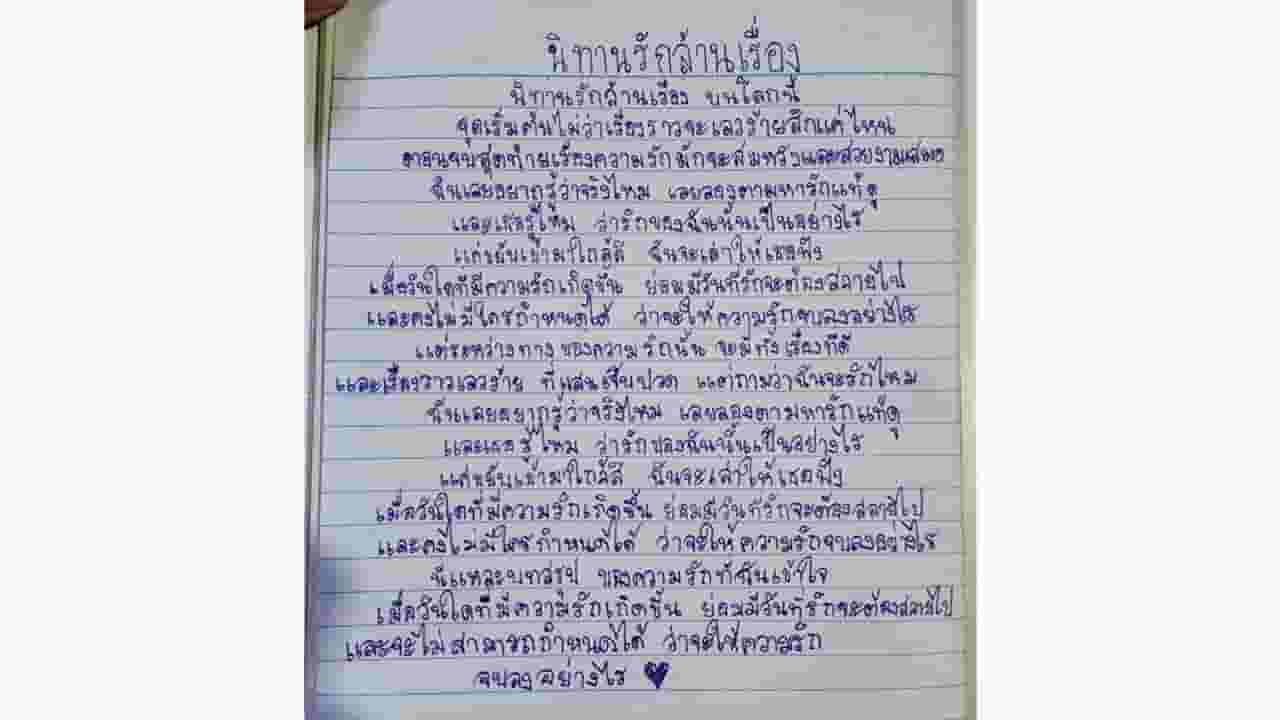 นิทานรักล้านเรื่อง
นิทานรักล้านเรื่อง บนโลกนี้
จุดเริ่มต้นไม่ว่าเรื่องราวจะเลวร้ายสักแค่ไหน
ตอนจบสุดท้ายเรื่องความรักมักจะสมหวังและสวยงามเสมอ
ฉันเลยอยากรู้ว่าจริงไหม เลยลองตามหารักแท้ดู
และเธอรู้ไหม ว่ารักของฉันนั้นเป็นอย่างไร
แค่ขยับเข้ามาใกล้สิ ฉันจะเล่าให้เธอฟัง
เมื่อวันใดที่มีความรักเกิดขึ้น ย่อมมีวันที่รักจะต้องสลายไป
และคงไม่มีใครกำหนดได้ ว่าจะให้ความรักจบลงอย่างไร
แต่ระหว่างทางของความรักนั้น จะมีทั้งเรื่องที่ดี
และเรื่องราวเลวร้าย ที่แสนเจ็บปวด แต่ถามว่าฉันจะรักไหม
ฉันเลยอยากรู้ว่าจริงไหม เลยลองตามหารักแท้ดู
และเธอรู้ไหม ว่ารักของฉันนั้นเป็นอย่างไร
แค่ขยับเข้ามาใกล้สิ ฉันจะเล่าให้เธอฟัง
เมื่อวันใดที่มีความรักเกิดขึ้น ย่อมมีวันที่รักจะต้องสลายไป
และคงไม่มีใครกำหนดได้ ว่าจะให้ความรักจบลงอย่างไร
นี่แหละบทสรุป ของความรักที่ฉันเข้าใจ
เมื่อวันใดที่มีความรักเกิดขึ้น ย่อมมีวันที่รักจะต้องสลายไป
และจะไม่สามารถกำหนดได้ ว่าจะให้ความรัก
จบลงอย่างไร